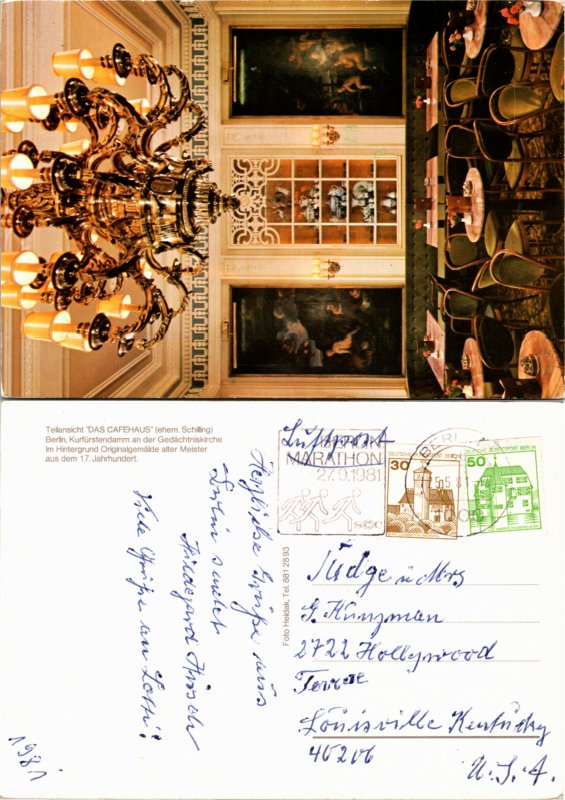 Teilansicht "DAS CAFEHAUS" (ehem. Schilling)
Berlin, Kurfürstendamm an der Gedächtniskirche
Im Hintergrund Originalgemälde alter Meister
aus dem 17. Jahrhundert.
Luftpost
BERLIN
MARATHON
27.9.1981
SCC
BERLIN
30
50
DEUTSCHE BUNDESPOST BERLIN
Herzliche Grüße aus
Berlin sendet
Hildegard Hirsch
Viele Grüße an Lotti!
1981
Foto Heidsik, Tel. 881 28 93
Judge u Mrs
G. Kunzman
2722 Hollywood
Terrace
Louisville Kentucky
40206
U.S.A.